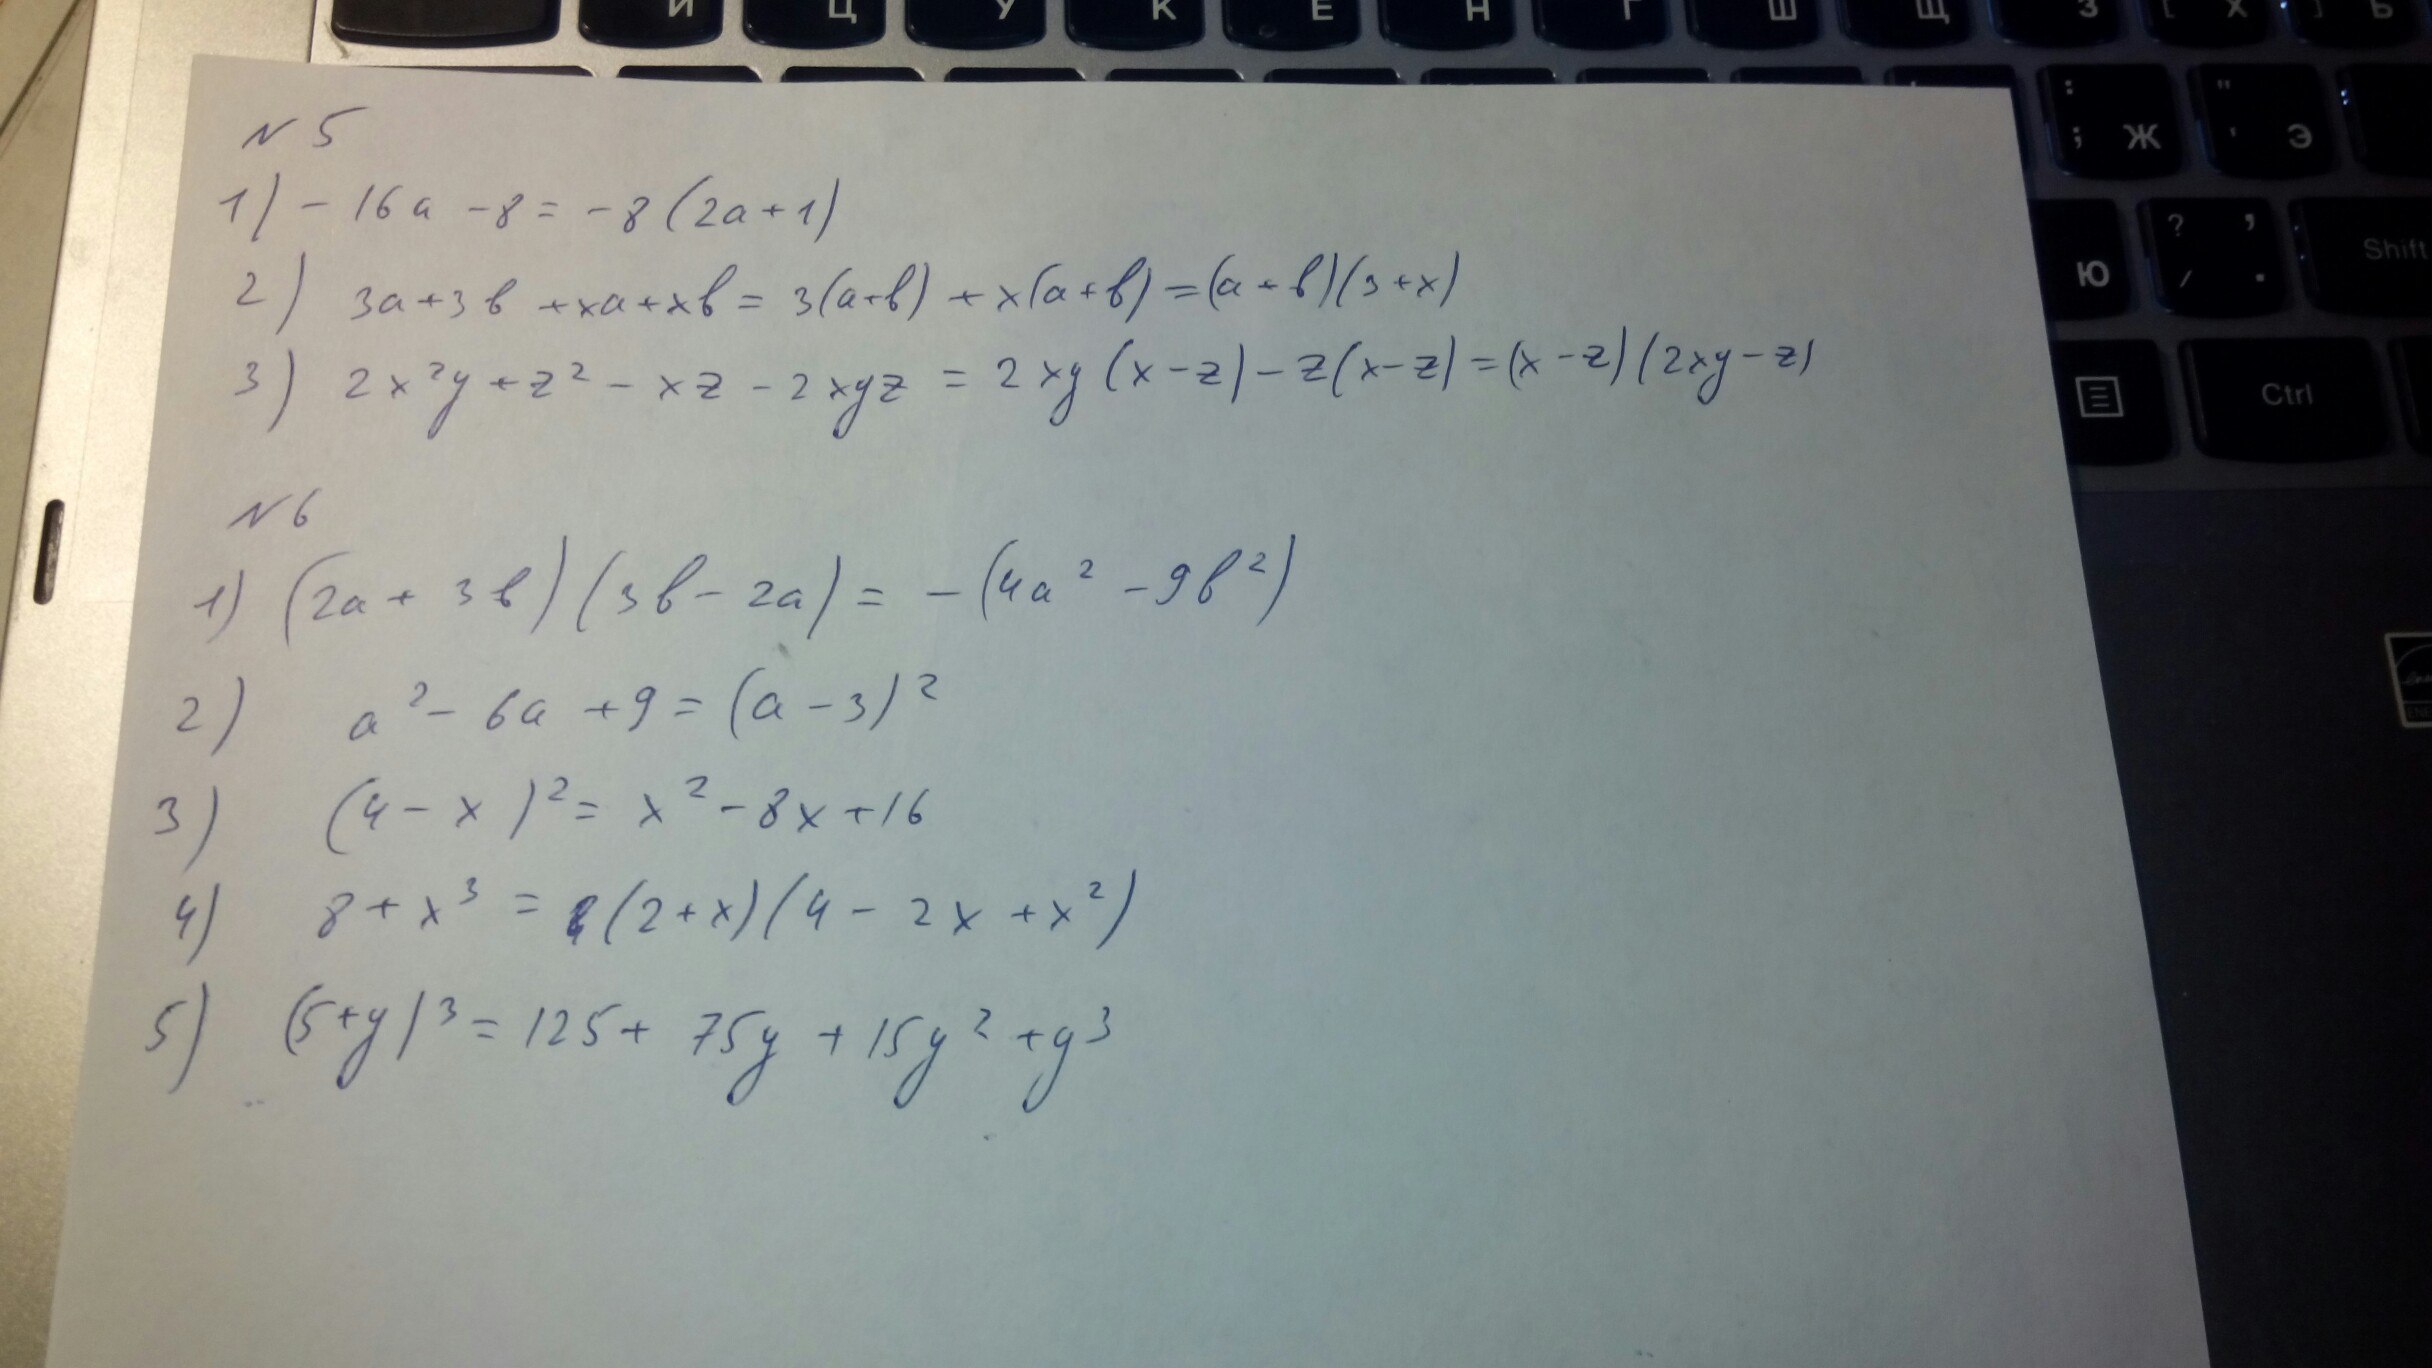 Й Ц У К Е Н Г Ш Щ З [ Х ] Ъ
: ; Ж " ' Э
Ю ? / , . Shift
Ctrl
N 5
1) - 16a - 8 = -8 (2a + 1)
2) 3a + 3b + xa + xb = 3(a+b) + x(a+b) = (a+b)(3+x)
3) 2x²y + z² - xz - 2xyz = 2xy (x-z) - z(x-z) = (x-z)(2xy-z)
N 6
1) (2a + 3b)(3b - 2a) = - (4a² - 9b²)
2) a² - 6a + 9 = (a - 3)²
3) (4 - x)² = x² - 8x + 16
4) 8 + x³ = (2+x)(4 - 2x + x²)
5) (5+y)³ = 125 + 75y + 15y² + y³